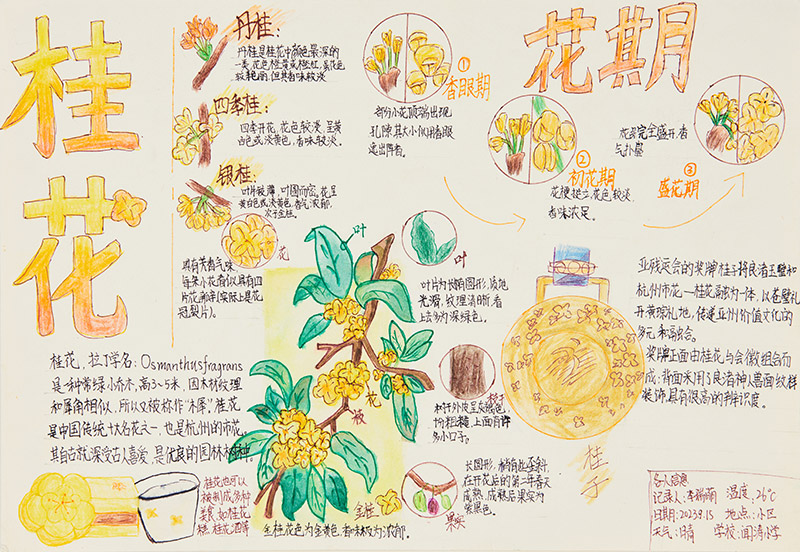 桂花
丹桂:
丹桂是桂花中颜色最深的
一类,花色橙黄或橙红,
较艳丽,但其香味较淡
四季桂:
四季开花,花色较淡,呈黄
白色或淡黄色,香味较淡。
银桂:
叶片较薄,叶圆而密,花呈
黄白色或淡黄色,香气浓郁,
次于金桂。
花
具有芳香气味
每朵小花看似具有四
片花瓣(实际上是花
冠裂片)。
花期
①
香眼期
部分小花顶端出现
孔隙,
②
初花期
花梗挺立,花色较淡,
香味浓足。
③
盛花期
花朵完全盛开,香
气扑鬓
叶
叶
叶片为长椭圆形,质地
光滑,纹理清晰,看
上去多为深绿色。
花
枝
树干外皮呈灰褐色,
较粗糙,上面有许
多小口子。
果实
长圆形,稍有些歪斜,
在开花后的第二年春天
成熟,成熟后果实为
紫黑色。
金桂
金桂花色为金黄色,香味极为浓郁。
亚残运会的奖牌“桂子”将良渚玉璧和
杭州市花—桂花融为一体,以苍璧礼
天黄琮礼地,传递亚洲价值文化的
多元和融合。
奖牌正面由桂花与会徽组合而
成;背面采用了良渚神人兽面纹样
装饰,具有很高的辨识度。
桂子
桂花,拉丁学名:Osmanthusfragrans
是一种常绿小乔木,高3~5米,因木材纹理
和犀角相似,所以又被称作“木犀”。桂花
是中国传统十大名花之一,也是杭州的市花。
其自古就深受古人喜爱,是优良的园林树种。
桂花也可以
被制成多种
美食,如桂花
糕、桂花酒等
个人信息
记录人: 温度:26℃
日期:2023.9.15 地点:小区
天气:晴 学校:闻涛小学